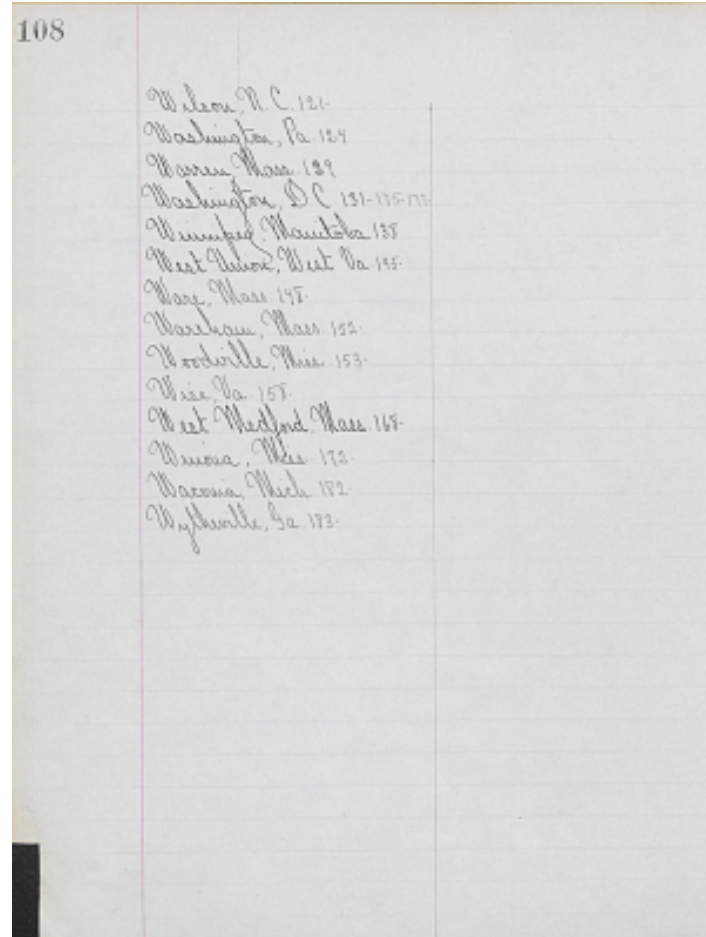 108
Wilson, N.C. 121-
Washington, Pa. 124
Warren, Mass. 129
Washington, D.C. 131-175-177
Winnipeg, Manitoba 138
West Union, West Va. 145-
Ware, Mass. 148-
Wareham, Mass. 152-
Woodville, Miss. 153-
Wise, Va. 158-
West Medford, Mass. 168-
Winona, Miss. 172-
Waconia, Mich. 182-
Wytheville, Ga. 183-